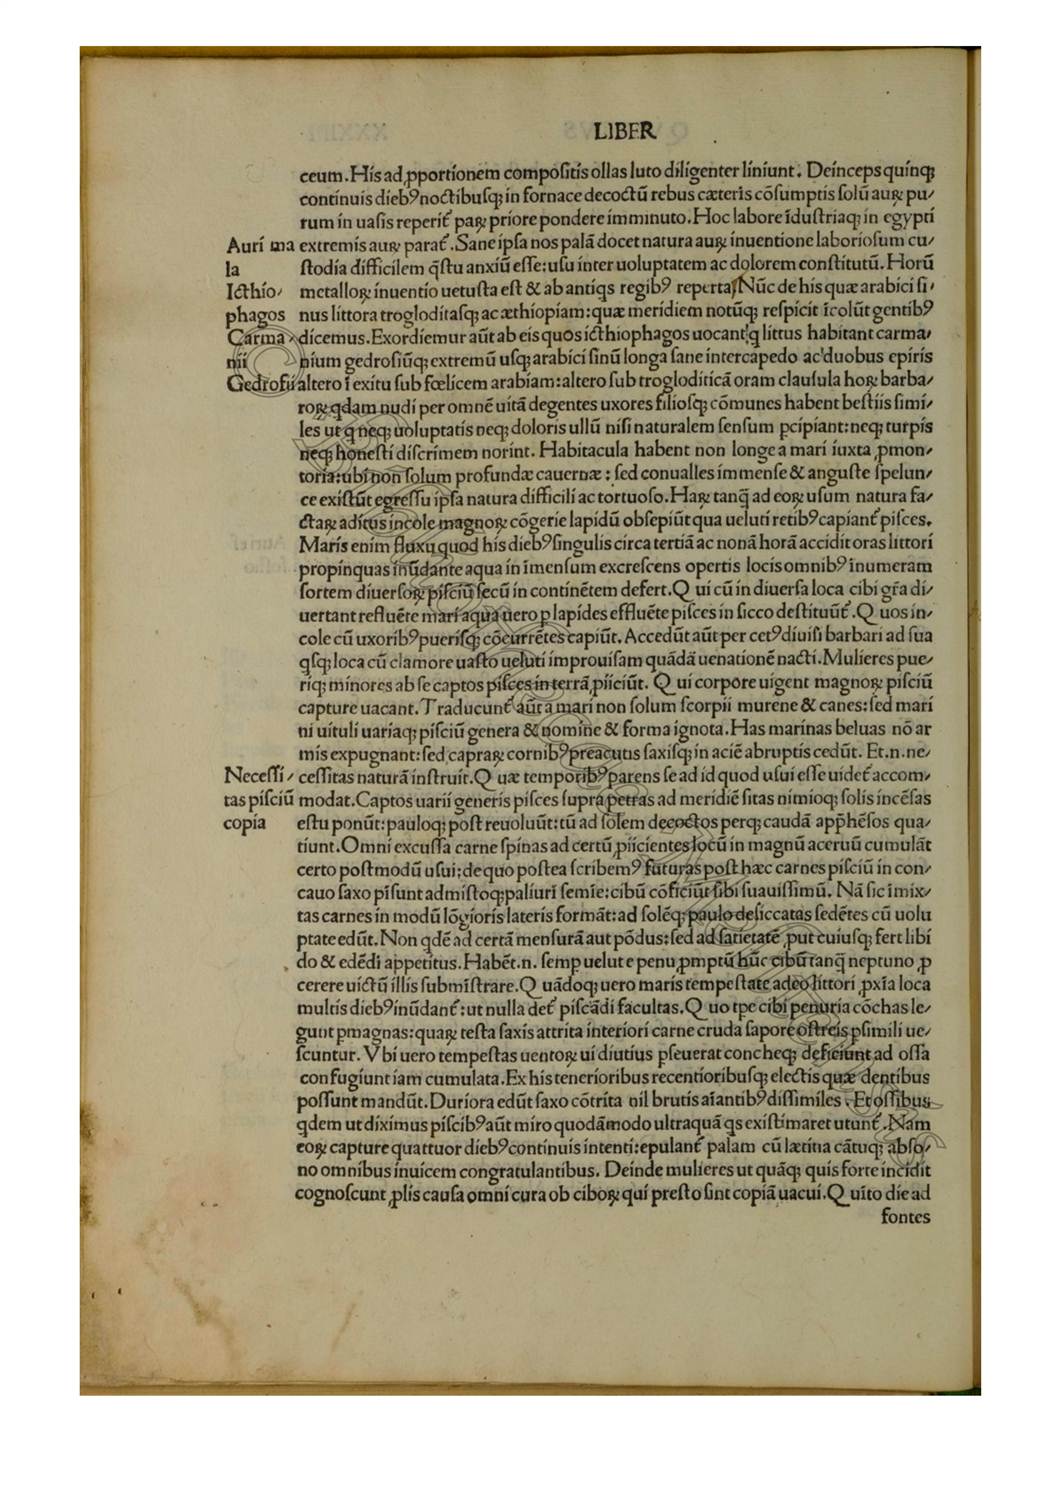 LIBER
ceum. His ad ꝓportionem compositis ollas luto diligenter liniunt. Deinceps quinqꝫ
continuis dieb⁹ noctibusqꝫ in fornace decoctū rebus cæteris cōsumptis solū auꝝ pu⸗
rum in uasis reperit᷑ paꝝ priore pondere imminuto. Hoc labore īdustriaqꝫ in egypti
Auri ma
extremis auꝝ parat᷑. Sane ipsa nos palā docet natura auꝝ inuentione laboriosum cu⸗
la
stodia difficilem q̄stu anxiū esse: usu inter uoluptatem ac dolorem constitutū. Horū
Icthio⸗
metalloꝝ inuentio uetusta est & ab antiqs regib⁹ reperta. Nūc de his quæ arabici si⸗
phagos
nus littora trogloditasqꝫ ac æthiopiam: quæ meridiem notūqꝫ respicit īcolūt gentib⁹
Carma⸗
dicemus. Exordiemur aūt ab eis quos icthiophagos uocant᷑ q littus habitant carma⸗
nii
nium gedrosiūqꝫ extremū usqꝫ arabici sinū longa sane intercapedo ac duobus epiris
Gedrosii
altero ī exitu sub fœlicem arabiam: altero sub trogloditicā oram clausula hoꝝ barba⸗
roꝝ qdam nudi per omnē uitā degentes uxores filiosqꝫ cōmunes habent bestiis simi⸗
les ut q neqꝫ uoluptatis neqꝫ doloris ullū nisi naturalem sensum pcipiant: neqꝫ turpis
neqꝫ honesti discrimem norint. Habitacula habent non longe a mari iuxta ꝓmon⸗
toria: ubi non solum profundæ cauernæ: sed conualles immense & anguste spelun⸗
ce existūt egressu ipsa natura difficili ac tortuoso. Haꝝ tanq̄ ad eoꝝ usum natura fa⸗
ctaꝝ aditus incole magnoꝝ cōgerie lapidū obsepiūt qua ueluti retib⁹ capiant᷑ pisces.
Maris enim fluxu quod his dieb⁹ singulis circa tertiā ac nonā horā accidit oras littori
propinquas inūdante aqua in īmensum excrescens opertis locis omnib⁹ inumeram
sortem diuersoꝝ pisciū secū in continētem defert. Qui cū in diuersa loca cibi gr̄a di⸗
uertant refluēte mari aqua uero p lapides effluēte pisces in sicco destituūt᷑. Quos in⸗
cole cū uxorib⁹ puerisqꝫ cōcurrētes capiūt. Accedūt aūt per cet⁹ diuisi barbari ad sua
qsqꝫ loca cū clamore uasto ueluti improuisam quādā uenationē nacti. Mulieres pue⸗
riqꝫ minores ab se captos pisces in terrā ꝓiiciūt. Qui corpore uigent magnoꝝ pisciū
capture uacant. Traducunt᷑ aūt a mari non solum scorpii murene & canes: sed mari
ni uituli uariaqꝫ pisciū genera & nomine & forma ignota. Has marinas beluas nō ar
mis expugnant: sed capraꝝ cornib⁹ preacutis saxisqꝫ in aciē abruptis cedūt. Et .n. ne⸗
Necessi⸗
cessitas naturā instruit. Quæ temporib⁹ parens se ad id quod usui esse uidet᷑ accom⸗
tas pisciū
modat. Captos uarii generis pisces supra petras ad meridiē sitas nimioqꝫ solis incēsas
copia
estu ponūt: pauloqꝫ post reuoluūt: tū ad solem decoctos perqꝫ caudā app̄hēsos qua⸗
tiunt. Omni excussa carne spinas ad certū ꝓiicientes locū in magnū aceruū cumulāt
certo postmodū usui: de quo postea scribem⁹ futuras post hæc carnes pisciū in con⸗
cauo saxo pīsunt admistoqꝫ paliuri semīe: cibū cōficiūt sibi suauissimū. Nā sic īmix⸗
tas carnes in modū lōgioris lateris formāt: ad solēqꝫ paulo desiccatas sedētes cū uolu
ptate edūt. Non qdē ad certā mensurā aut pōdus: sed ad satietatē ꝓut cuiusqꝫ fert libi
do & edēdi appetitus. Habēt .n. semp uelut e penu ꝓmptū hūc cibū tanq̄ neptuno ꝓ
cerere uictū illis submīstrare. Quādoqꝫ uero maris tempestate adeo littori ꝓxīa loca
multis dieb⁹ inūdant᷑: ut nulla det᷑ piscādi facultas. Quo tpe cibi penuria cōchas le⸗
gunt pmagnas: quaꝝ testa saxis attrita interiori carne cruda sapore ostreis psimili ue⸗
scuntur. Vbi uero tempestas uentoꝝ ui diutius pseuerat concheqꝫ deficiunt ad ossa
confugiunt iam cumulata. Ex his tenerioribus recentioribusqꝫ electis quæ dentibus
possunt mandūt. Duriora edūt saxo cōtrita nil brutis aīantib⁹ dissimiles. Et ossibus
qdem ut diximus piscib⁹ aūt miro quodāmodo ultraquā qs existimaret utunt᷑. Nam
eoꝝ capture quattuor dieb⁹ continuis intenti: epulant᷑ palam cū lætitia cātuqꝫ abso⸗
no omnibus inuicem congratulantibus. Deinde mulieres ut quāqꝫ quis forte incidit
cognoscunt ꝓlis causa omni cura ob ciboꝝ qui presto sint copiā uacui. Quito die ad
fontes